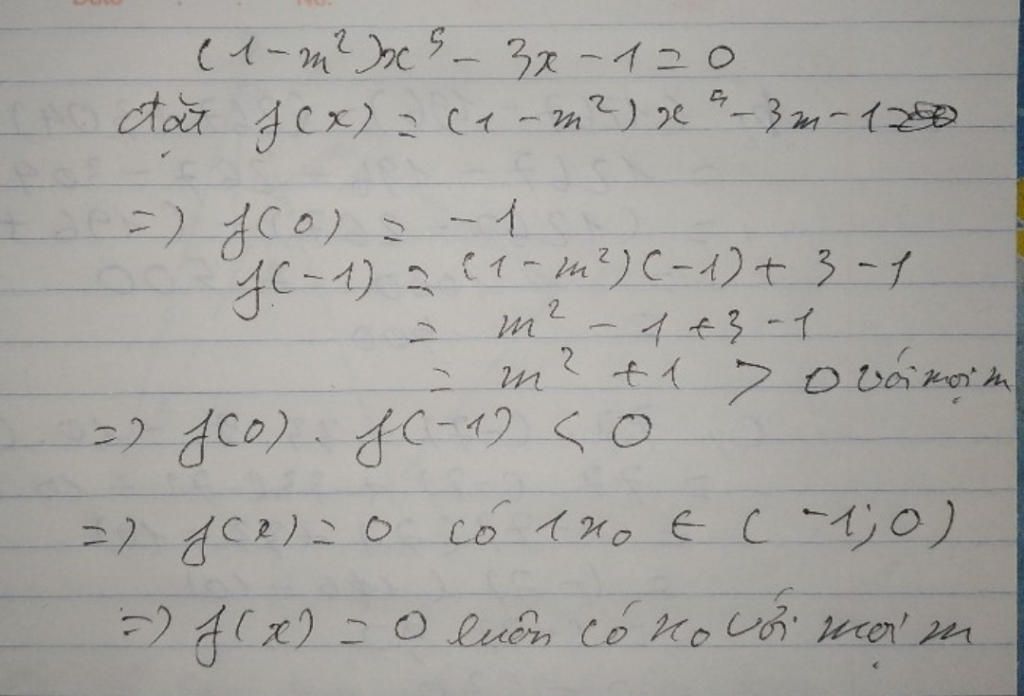 (1-m²)x⁵ - 3x - 1 = 0
đặt f(x) = (1-m²)x⁵ - 3m - 1
=> f(0) = -1
f(-1) = (1-m²)(-1) + 3 - 1
= m² - 1 + 3 - 1
= m² + 1 > 0 với mọi m
=> f(0) . f(-1) < 0
=> f(x) = 0 có 1 n₀ ∈ (-1; 0)
=> f(x) = 0 luôn có n₀ với mọi m